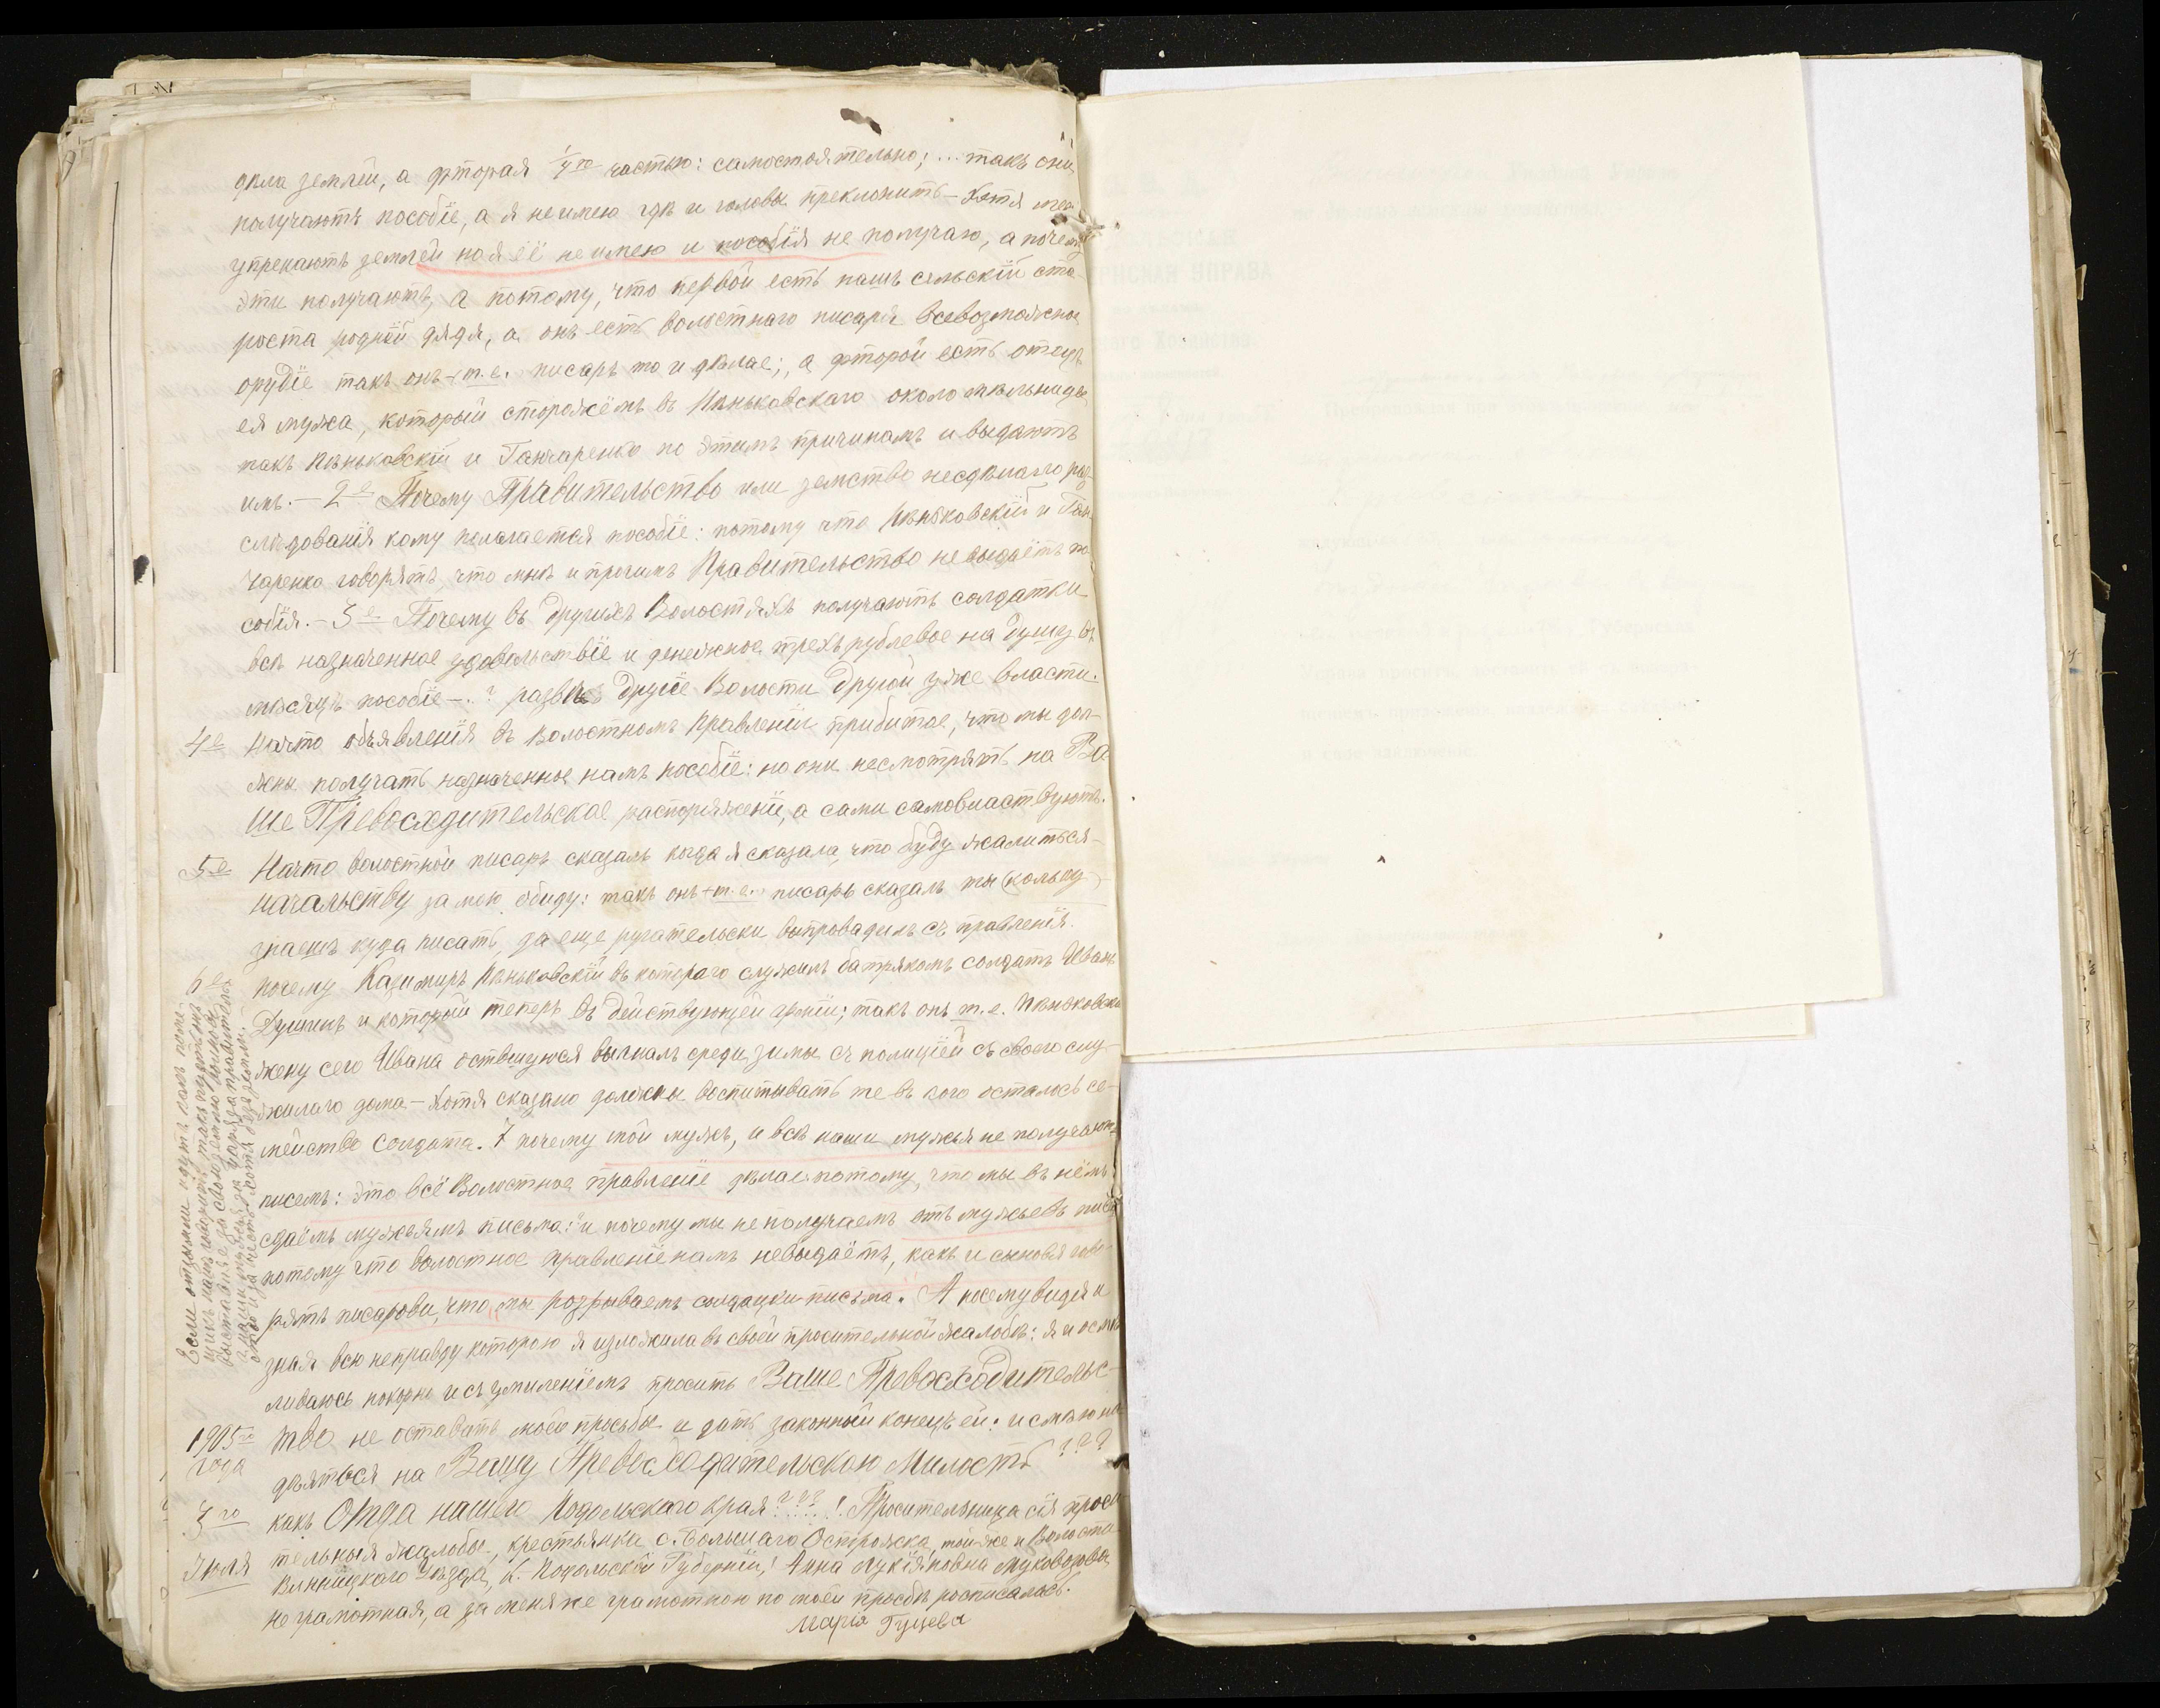 дѣла землей, а фторая ¼ю частью: самостоятельно; ... такъ они
получаютъ пособіе, а я не имею гдѣ и головы преклонить — хотя мен
упрекають землей но я её не имею и пособія не получаю, а почему
эти получаютъ, а потому, что первой есть нашъ сельскій ста-
роста родней дядя, а онъ есть волостнаго писаря всевозможное
орудіе такъ онъ + т.е. писарь то и дѣлае; а фторой есть отецъ
ея мужа, который сторожёмъ въ Пѣньковскаго около мѣльницы
такъ Пѣньковскій и Ганчаренко по этимъ причинамъ и выдаютъ
имъ. — 2е Почему Правительство или земство несдѣлало раз-
слѣдованія кому пелагается пособіе: потому что Пѣньковскій и Ган-
чаренко говорятъ, что мнѣ и прочимъ Правительство невыдаётъ по-
собія. — 3е Почему въ другихъ Волостяхъ получаютъ солдатки
всѣ назначенное удовольствіе и денежное трехъ рублевое на душу въ
мѣсяцъ пособіе — ..? развѣ другіе Волости другой уже власти.
4е Начто объявленія въ Волостномъ правленіи прибитое, что мы дол-
жны получать назначенное намъ пособіе: но они несмотрятъ на Ва-
ше Превосходительское распоряженіи, а сами самовластвуютъ.
5е Начто волостной писарь сказалъ когда я сказала, что буду жалиться
начальству за мою обиду: такъ онъ + т.е. писарь сказалъ ты (кольвy)
знаешъ куда писать, да еще ругательски выпровадилъ съ правленія.
6е почему Казимиръ Пѣньковскій въ котораго служилъ батрякомъ солдатъ Иванъ
Душинъ и который теперь въ действующей арміи; такъ онъ т.е. Пѣньковскі
жену сего Ивана оствшуюся выгналъ среди зимы съ полиціей съ своего слу-
жилаго дома — хотя сказано должны воспитывать те въ кого осталось се-
мейство солдата. 7 почему мой мужъ, и всѣ наши мужья не получают
писемъ: это всё Волостное правленіе дѣлае потому, что мы въ нёмъ
сдаёмъ мужьямъ письма: и почему мы не получаемъ отъ мужьевъ писемъ
потому что волостное правленіе намъ невыдаётъ, какъ и сыновья гово-
рятъ писарови, что мы розрываемъ солдацки письма. А посему видя и
зная всю неправду которою я изложила въ своей просительной жалобѣ: я и осмѣ-
ливаюсь покорно и съ умиленіемъ просить Ваше Превосходительс-
1905го тво не оставать моей просьбы и дать законный конецъ ей: и смѣю на-
года деяться на Вашу Превосходительскою Милость???
какъ Отца нашего Подольскаго края???...! Просителяница сія проси-
3го тельныя жалобы, крестьянка с. Большаго Осторожка, той-же и Волости
Іюля Винницкаго Уѣзда, К-Подольскей Губерніи! Анна Лукіяновна Муковозова
не грамотная, а за меня же грамотною по моей просбѣ росписалась.
Марія Гуцева
Если отзыми идутъ намъ